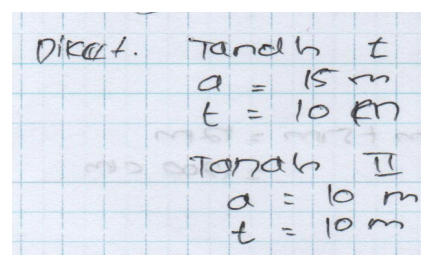 Diket. Tanah I
a = 15 m
t = 10 m
Tanah II
a = 10 m
t = 10 m